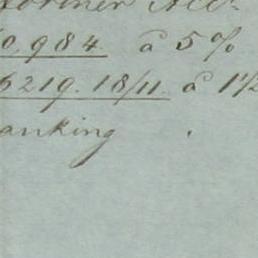 former Acc.
0,984. à 5%
6219.18/11. à 1½
anking